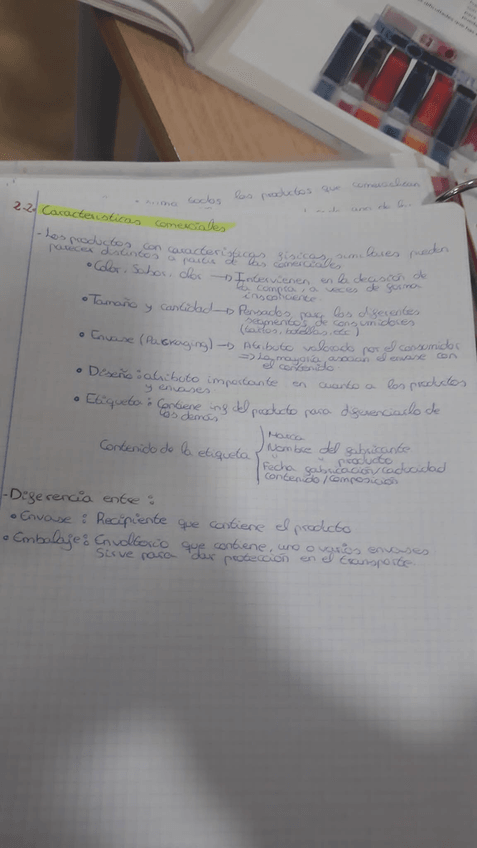 todos los productos que comercializan
2.2. Características comerciales
- Los productos con características físicas similares pueden
parecer distintos a partir de las comerciales
• Color, Sabor, olor → Intervienen en la decisión de
la compra, a veces de forma
inconsciente
• Tamaño y cantidad → Pensados para los diferentes
segmentos de consumidores
(latas, botellas, etc)
• Envase (Packaging) → Atributo valorado por el consumidor
⇒ La mayoría asocian el envase con
el contenido
• Diseño: atributo importante en cuanto a los productos
y envases
• Etiqueta: Contiene inf del producto para diferenciarlo de
los demás
Marca
Contenido de la etiqueta { Nombre del fabricante
" " producto
Fecha fabricación/caducidad
Contenido/composición
- Diferencia entre:
• Envase: Recipiente que contiene el producto
• Embalaje: Envoltorio que contiene, uno o varios envases
Sirve para dar protección en el transporte.